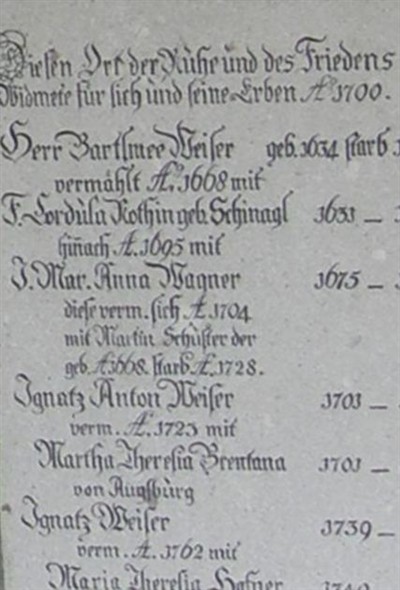 Diesen Ort der Ruhe und des Friedens
Widmete für sich und seine Erben Aº 1700.
Herr Bartlmee Weiser geb. 1634 starb 1
vermählt Aº. 1668 mit
F. Cordula Rothin geb. Schinagl 1631 –
hin̄ach A. 1695 mit
J. Mar. Anna Wagner 1675 –
diese verm. sich A. 1704
mit Martin Schuster der
geb. A. 1668. starb A. 1728.
Ignatz Anton Weiser 1701 –
verm. A. 1723 mit
Martha Theresia Brentana 1701 –
von Augsburg
Ignatz Weiser 1739 –
verm. A. 1762 mit
Maria Theresia Hafner 1740